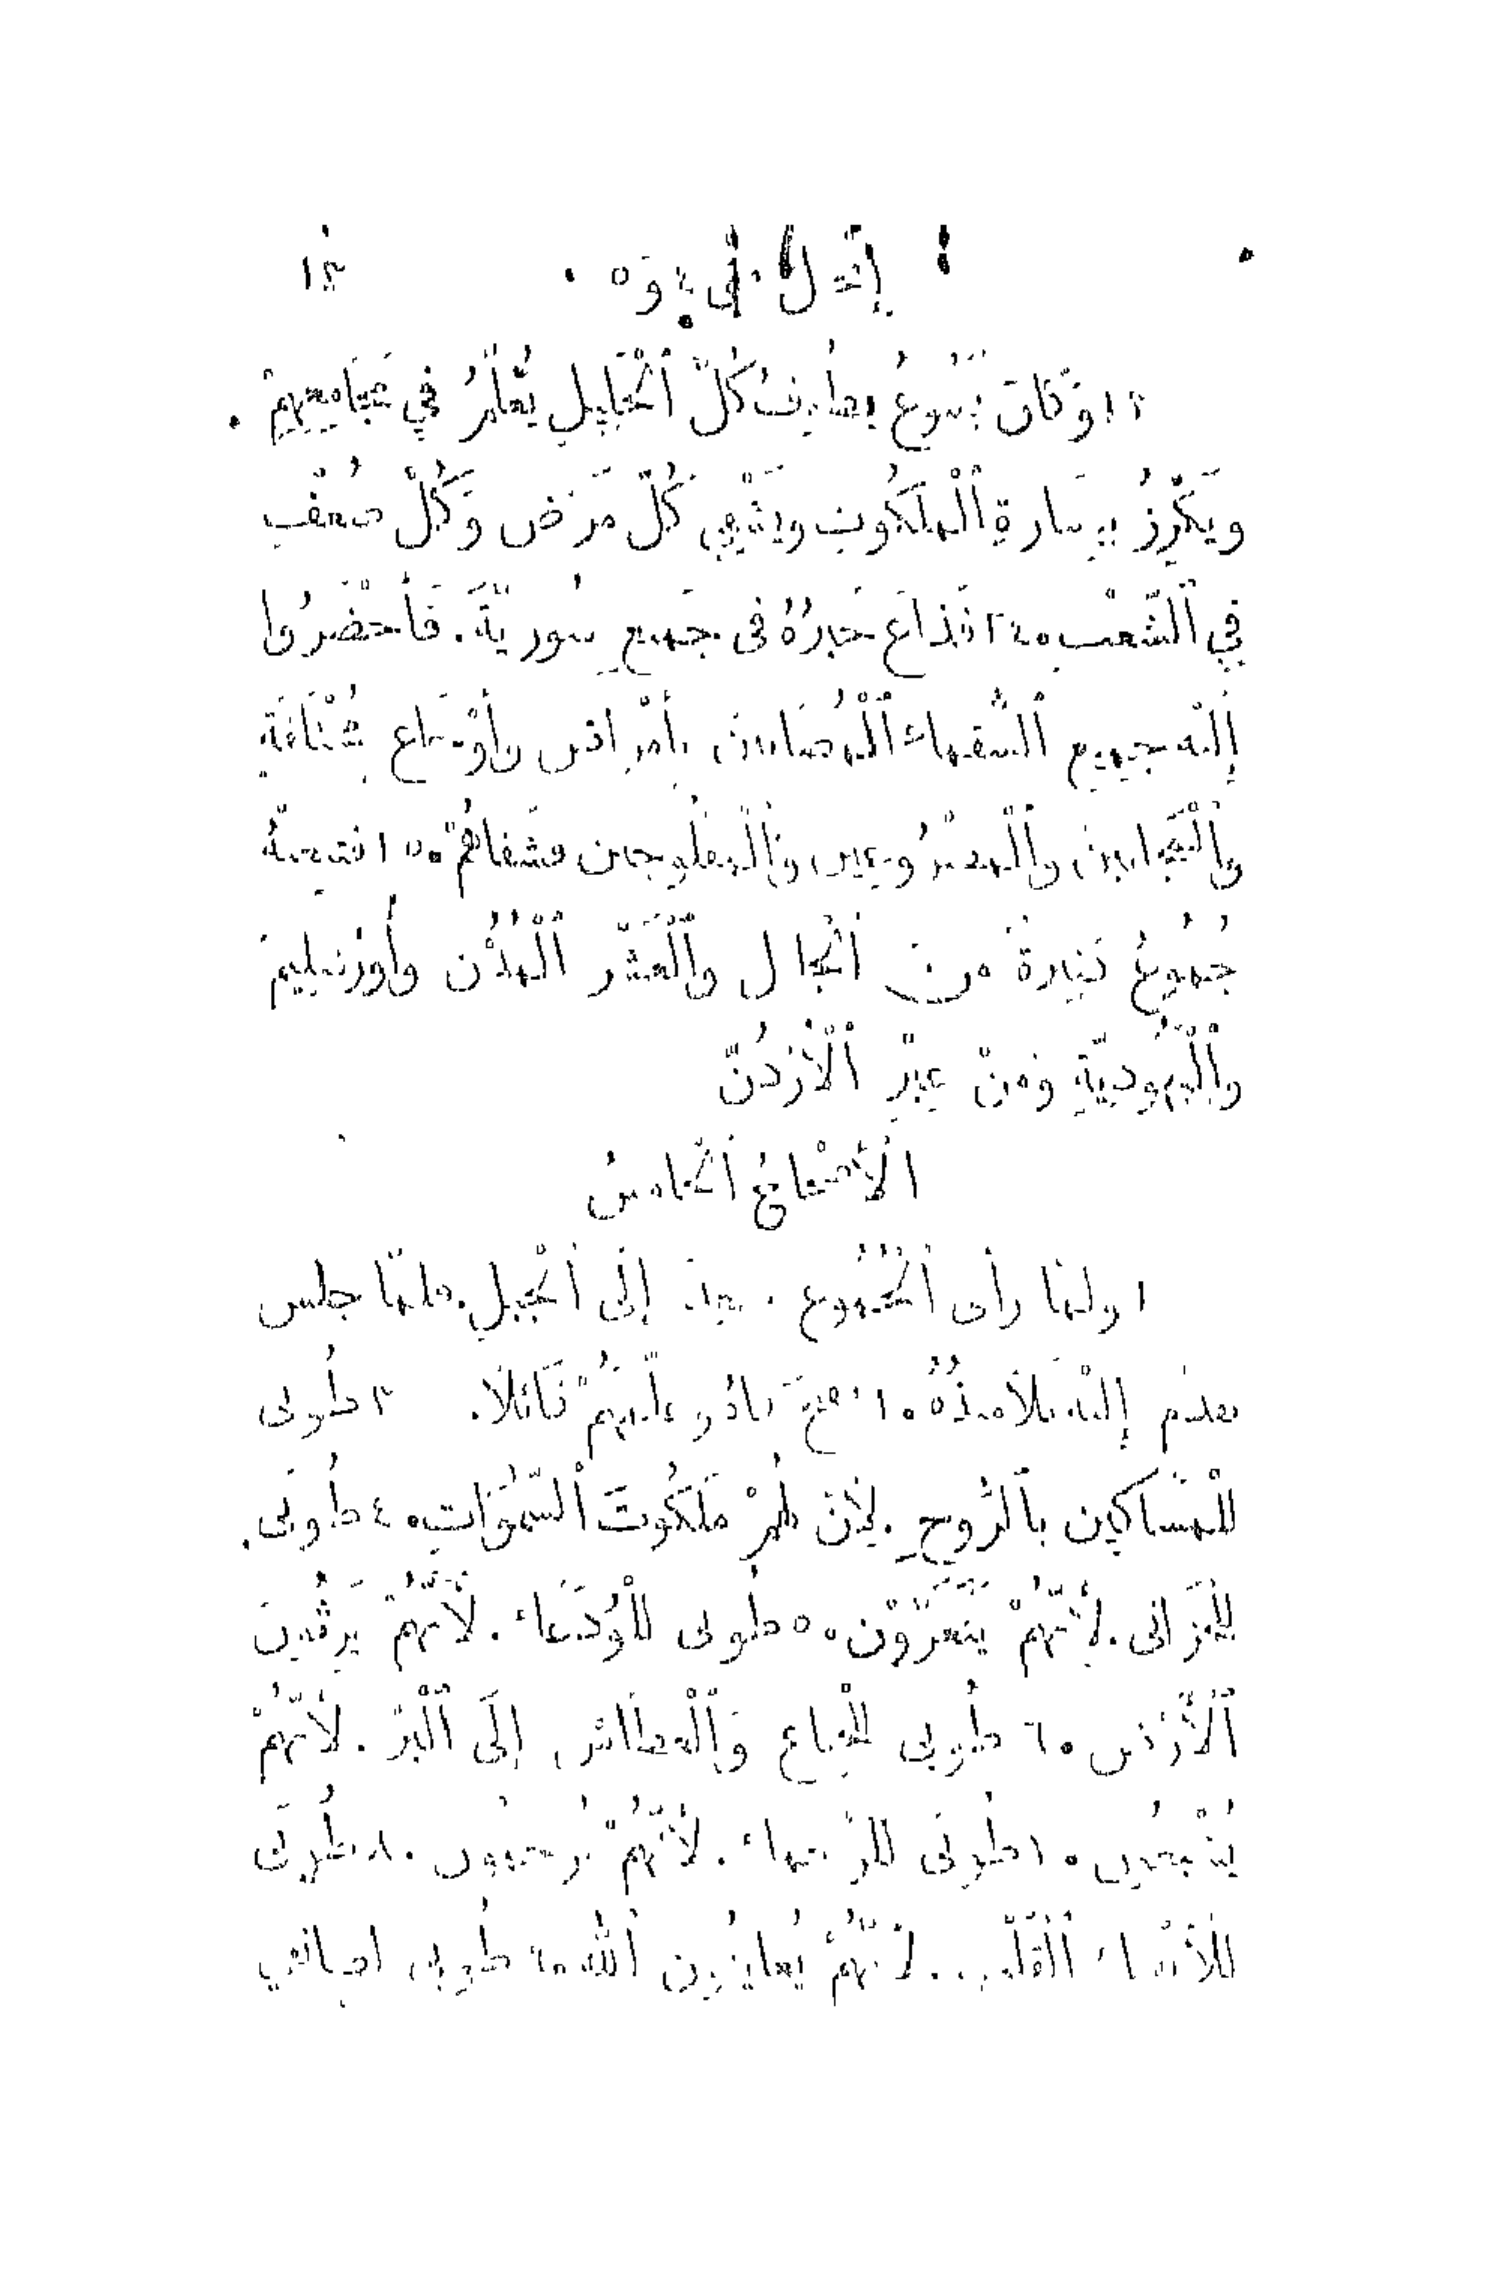 إنجيل متى ٤ وَ ٥ ١٣
٢٣ وَكَانَ يَسُوعُ يَطُوفُ كُلَّ ٱلْجَلِيلِ يُعَلِّمُ فِي مَجَامِعِهِمْ.
وَيَكْرِزُ بِبِشَارَةِ ٱلْمَلَكُوتِ وَيَشْفِي كُلَّ مَرَضٍ وَكُلَّ ضُعْفٍ
فِي ٱلشَّعْبِ. ٢٤ فَذَاعَ خَبَرُهُ فِي جَمِيعِ سُورِيَّةَ. فَأَحْضَرُوا
إِلَيْهِ جَمِيعَ ٱلسُّقَمَاءِ ٱلْمُصَابِينَ بِأَمْرَاضٍ وَأَوْجَاعٍ مُخْتَلِفَةٍ
وَٱلْمَجَانِينَ وَٱلْمَصْرُوعِينَ وَٱلْمَفْلُوجِينَ فَشَفَاهُمْ. ٢٥ فَتَبِعَتْهُ
جُمُوعٌ كَثِيرَةٌ مِنَ ٱلْجَلِيلِ وَٱلْعَشْرِ ٱلْمُدُنِ وَأُورُشَلِيمَ
وَٱلْيَهُودِيَّةِ وَمِنْ عِبْرِ ٱلْأُرْدُنِّ
ٱلْأَصْحَاحُ ٱلْخَامِسُ
١ وَلَمَّا رَأَى ٱلْجُمُوعَ صَعِدَ إِلَى ٱلْجَبَلِ. فَلَمَّا جَلَسَ
تَقَدَّمَ إِلَيْهِ تَلَامِيذُهُ. ٢ فَفَتَحَ فَاهُ وَعَلَّمَهُمْ قَائِلًا. ٣ طُوبَى
لِلْمَسَاكِينِ بِٱلرُّوحِ. لِأَنَّ لَهُمْ مَلَكُوتَ ٱلسَّمٰوَاتِ. ٤ طُوبَى
لِلْحَزَانَى. لِأَنَّهُمْ يَتَعَزَّوْنَ. ٥ طُوبَى لِلْوُدَعَاءِ. لِأَنَّهُمْ يَرِثُونَ
ٱلْأَرْضَ. ٦ طُوبَى لِلْجِيَاعِ وَٱلْعِطَاشِ إِلَى ٱلْبِرِّ. لِأَنَّهُمْ
يُشْبَعُونَ. ٧ طُوبَى لِلرُّحَمَاءِ. لِأَنَّهُمْ يُرْحَمُونَ. ٨ طُوبَى
لِلْأَنْقِيَاءِ ٱلْقَلْبِ. لِأَنَّهُمْ يُعَايِنُونَ ٱللهَ. ٩ طُوبَى لِصَانِعِي